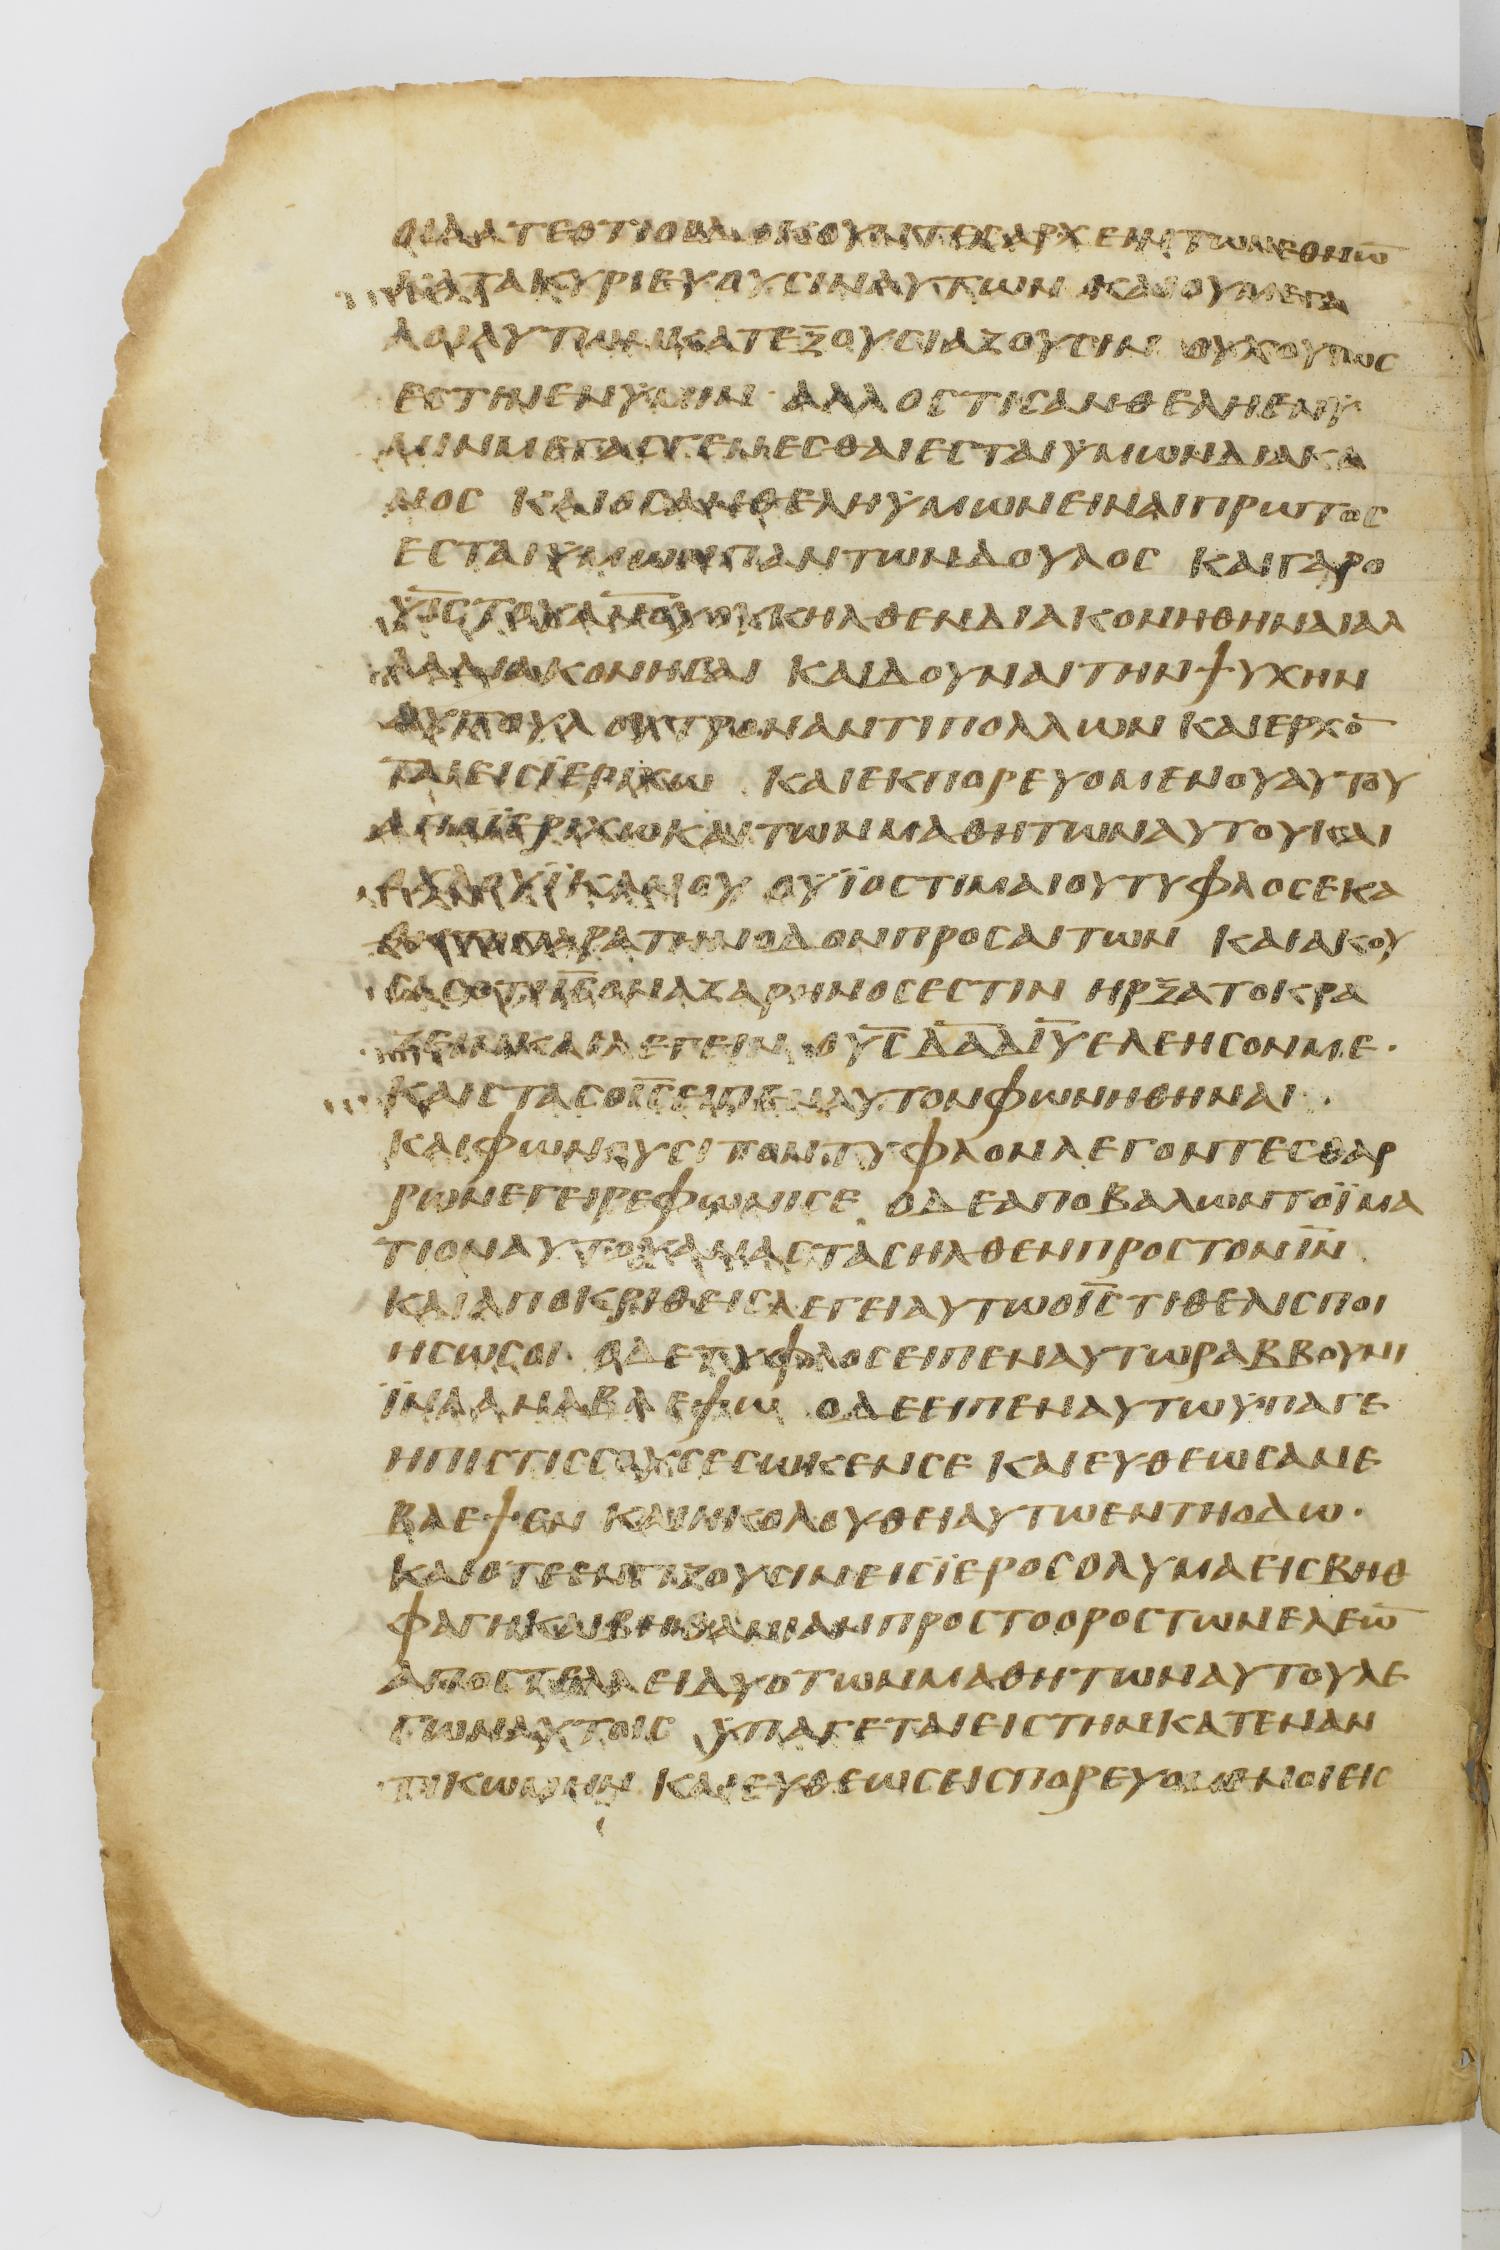 οιδατε οτι οι δοκουντες αρχειν των εθνω̅
κατακυριευουσιν αυτων και οι μεγα
λοι αυτων κατεξουσιαζουσιν ουχ ουτως
εστιν εν υμιν · αλλ οστις αν θελη εν ϋ
μιν μεγας γενεσθαι εσται υμων διακο
νος και ος αν θελη ϋμων ειναι πρωτος
εσται υμων παντων δουλος και γαρ ο
υ̅ς̅ του α̅ν̅ο̅υ̅ ουκ ηλθεν διακονηθηναι αλ
λα διακονησαι και δουναι την ψυχην
αυτου λουτρον αντι πολλων και ερχο̅
ται εις ϊεριχω και εκπορευομενου αυτου
απο ϊεριχω και των μαθητων αυτου και
οχλου ϊκανου ο υϊος τιμαιου τυφλος εκα
θητο παρα την οδον προσαιτων και ακου
σας οτι ι̅ς̅ ο ναζαρηνος εστιν ηρξατο κρα
ζειν και λεγειν υ̅ς̅ δ̅α̅δ̅ ι̅υ̅ ελεησον με ·
και στας ο ι̅ς̅ ειπεν αυτον φωνηθηναι ·
και φωνουσι τον τυφλον λεγοντες θαρ
ρων εγειρε φωνι σε ο δε αποβαλων το ϊμα
τιον αυτου αναστας ηλθεν προς τον ι̅ν̅
και αποκριθεις λεγει αυτω ο ι̅ς̅ τι θελις ποι
ησω σοι ο δε τυφλος ειπεν αυτω ραββουνι
ϊνα αναβλεψω ο δε ειπεν αυτω ϋπαγε
η πιστις σου σεσωκεν σε και ευθεως ανε
βλεψεν και ηκολουθει αυτω εν τη οδω ·
και οτε εγγιζουσιν εις ϊεροσολυμα εις βηθ
φαγη και βηθανιαν προς το ορος των ελεω̅
αποστελλει δυο των μαθητων αυτου λε
γων αυτοις ϋπαγεται εις την κατεναν
τι κωμην και ευθεως εισπορευομενοι εις